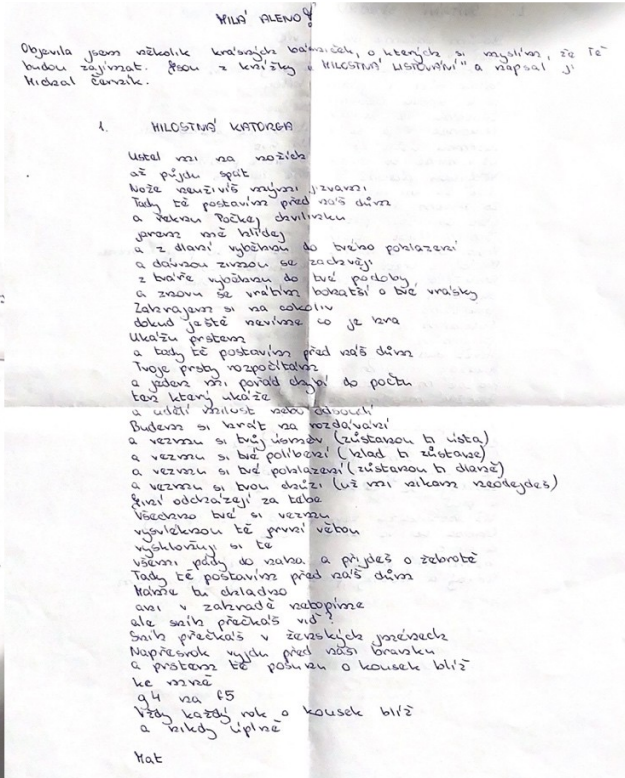 MILÁ ALENO!
Objevila jsem několik krásných básniček, o kterých si myslím, že Tě
budou zajímat. Jsou z knížky „MILOSTNÁ LISTOVÁNÍ" a napsal ji
Michal Černík.
1. MILOSTNÁ KATORGA
Ustel mi na nožích
až půjdu spát
Nože neuživíš mými jizvami
Tady tě postavím před náš dům
a řeknu Počkej chvilinku
jenom mě hlídej
a z dlaní vyběhnu do tvého pohlazení
a dávnou zimou se zachvěji
z tváře vyběhnu do tvé podoby
a znovu se vrátím bohatší o tvé vrásky
Zahrajem si na cokoliv
dokud ještě nevíme co je hra
Ukážu prstem
a tady tě postavím před náš dům
Tvoje prsty rozpočítám
a jeden mi pořád chybí do počtu
ten který ukáže
a udělí milost nebo
Budem si hrát na rozdávání
a vezmu si tvůj úsměv (zůstanou ti ústa)
a vezmu si tvé políbení (hlad ti zůstane)
a vezmu si tvé pohlazení (zůstanou ti dlaně)
a vezmu si tvou chůzi (už mi nikam neodejdeš)
Jiní odcházejí za tebe
Všechno tvé si vezmu
vysvléknou tě první větou
vyskloňuji si tě
všemi pády do naha a přijdeš o žebrotě
Tady tě postavím před náš dům
Máme tu chladno
ani v zahradě netopíme
ale sníh přečkáš viď?
Sníh přečkáš v ženských jménech
Napřesrok vyjdu před naši branku
a prstem tě pošunu o kousek blíž
ke mně
g4 na f5
Vždy každý rok o kousek blíž
a nikdy úplně
Mat